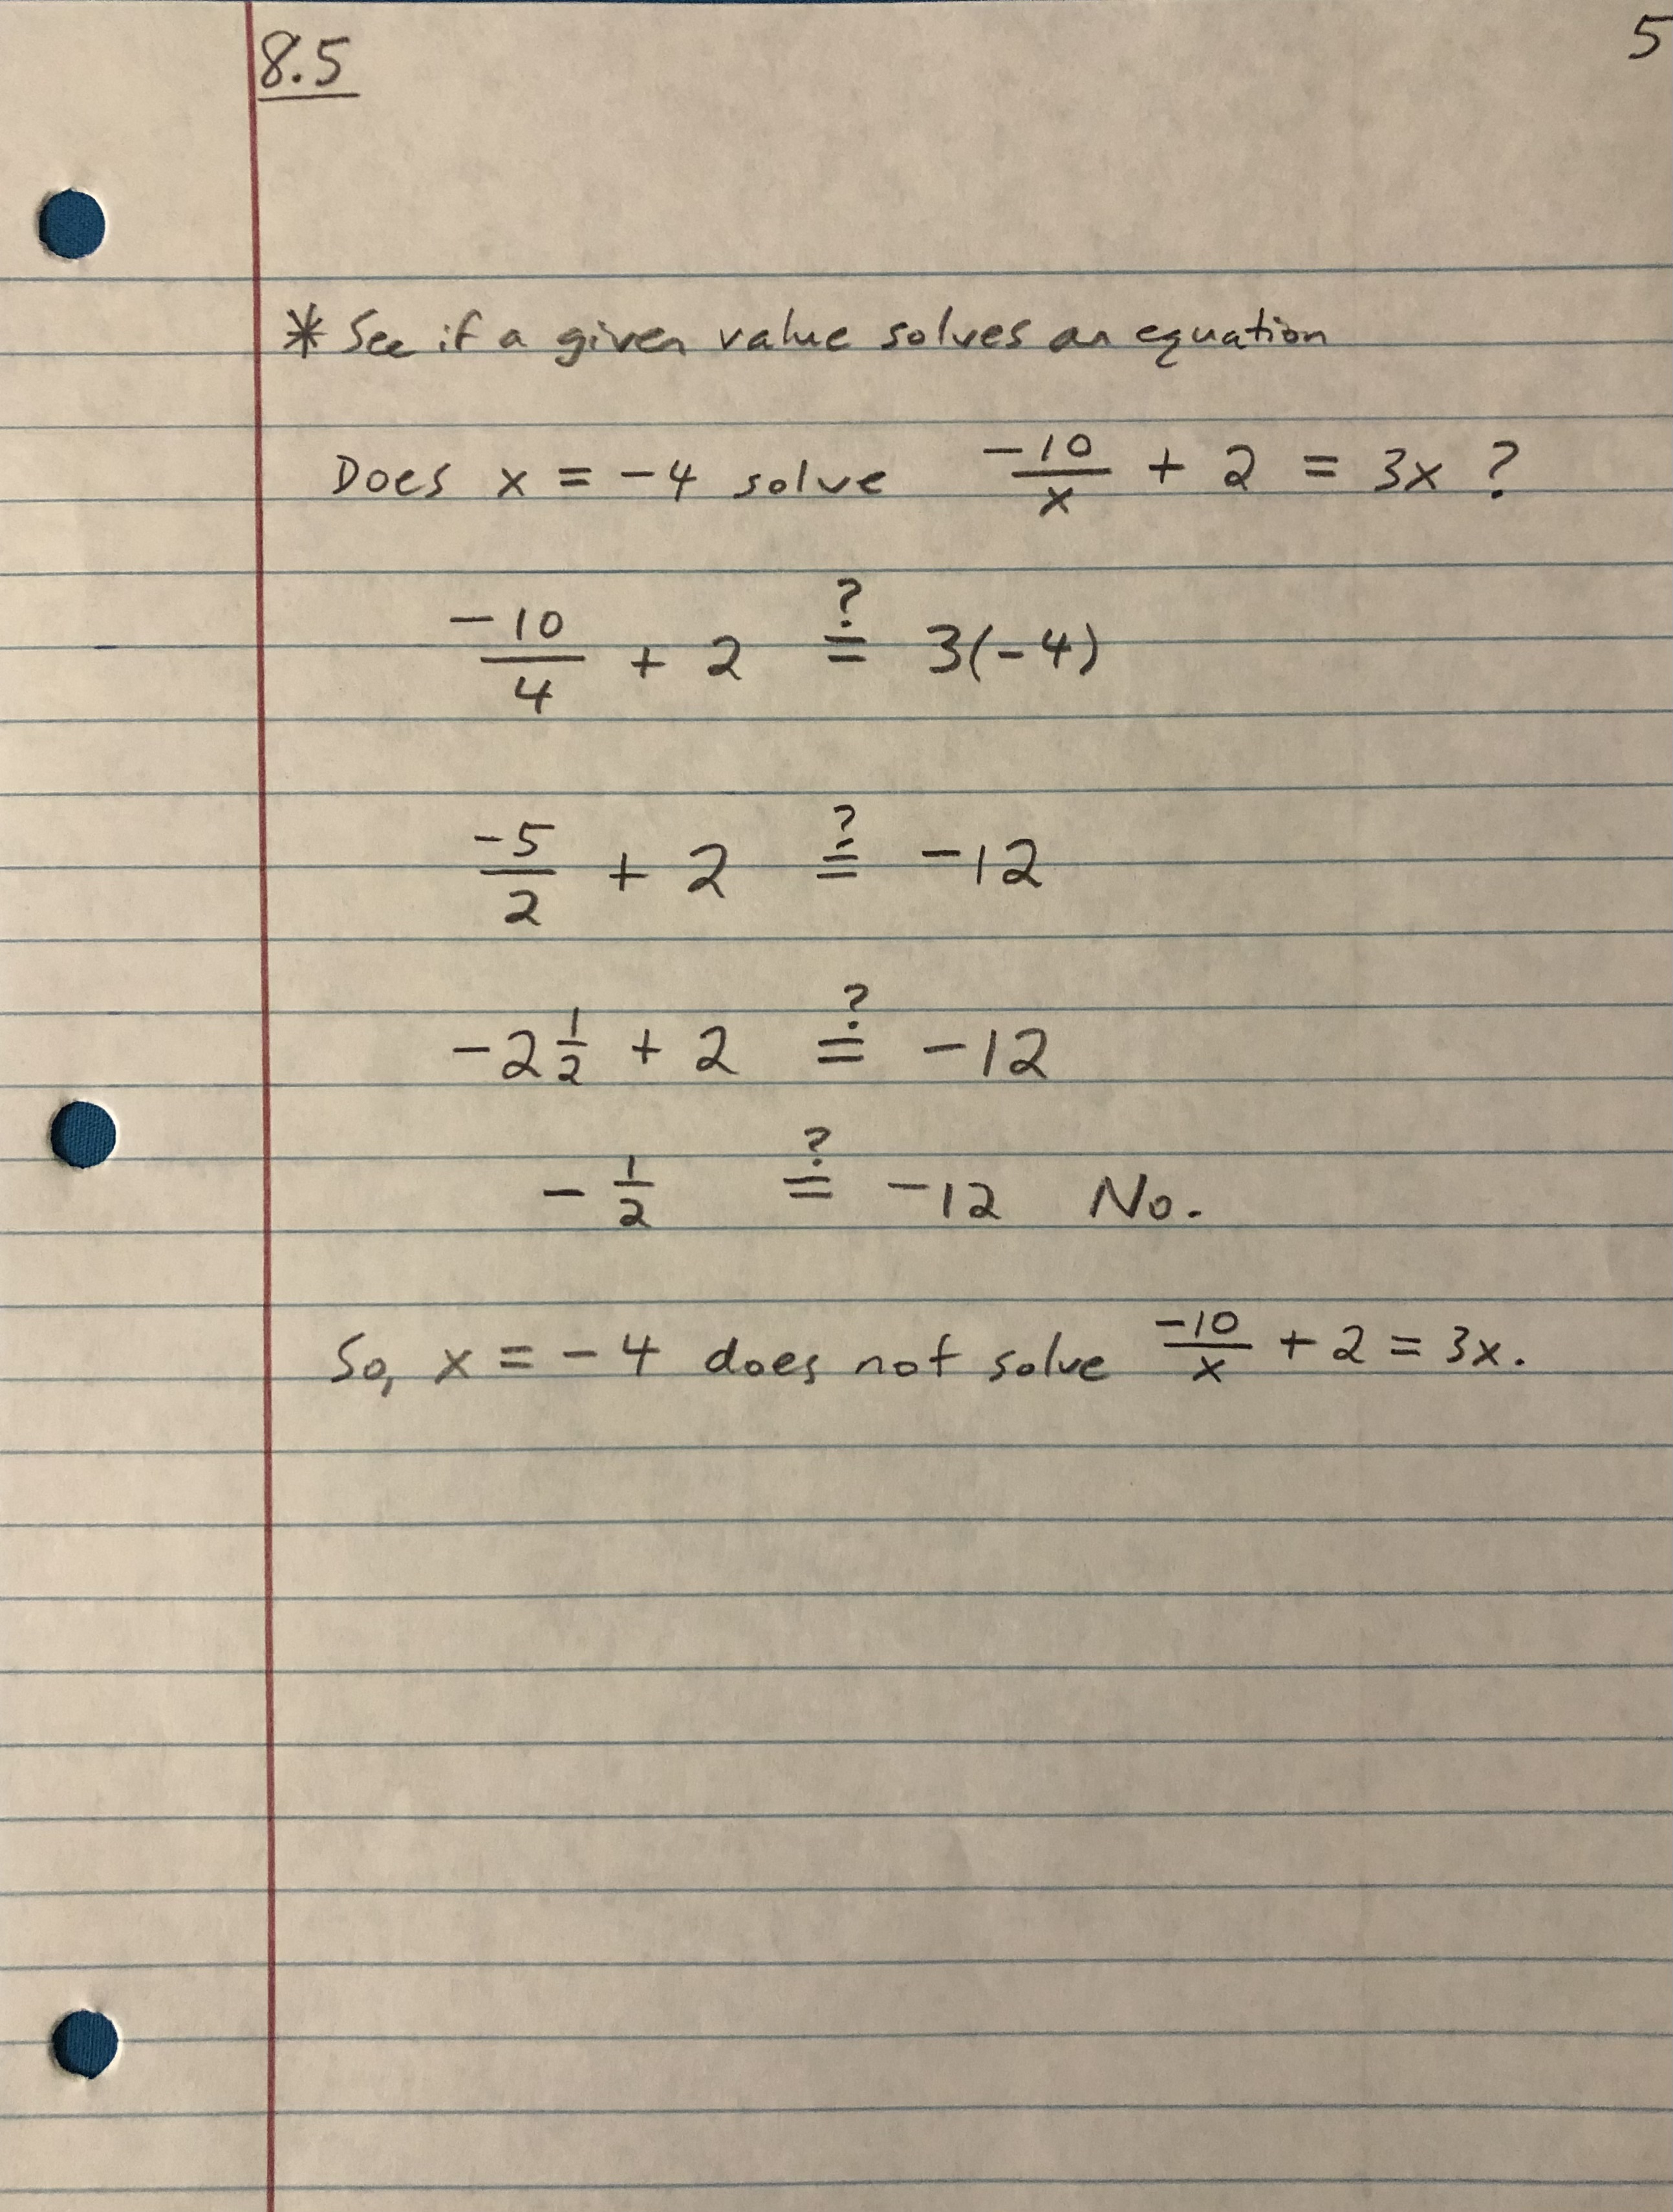 8.5 5
* See if a given value solves an equation
Does x = -4 solve -10/x + 2 = 3x ?
-10/4 + 2 ≟ 3(-4)
-5/2 + 2 ≟ -12
-2 1/2 + 2 ≟ -12
-1/2 ≟ -12 No.
So, x = -4 does not solve -10/x + 2 = 3x.